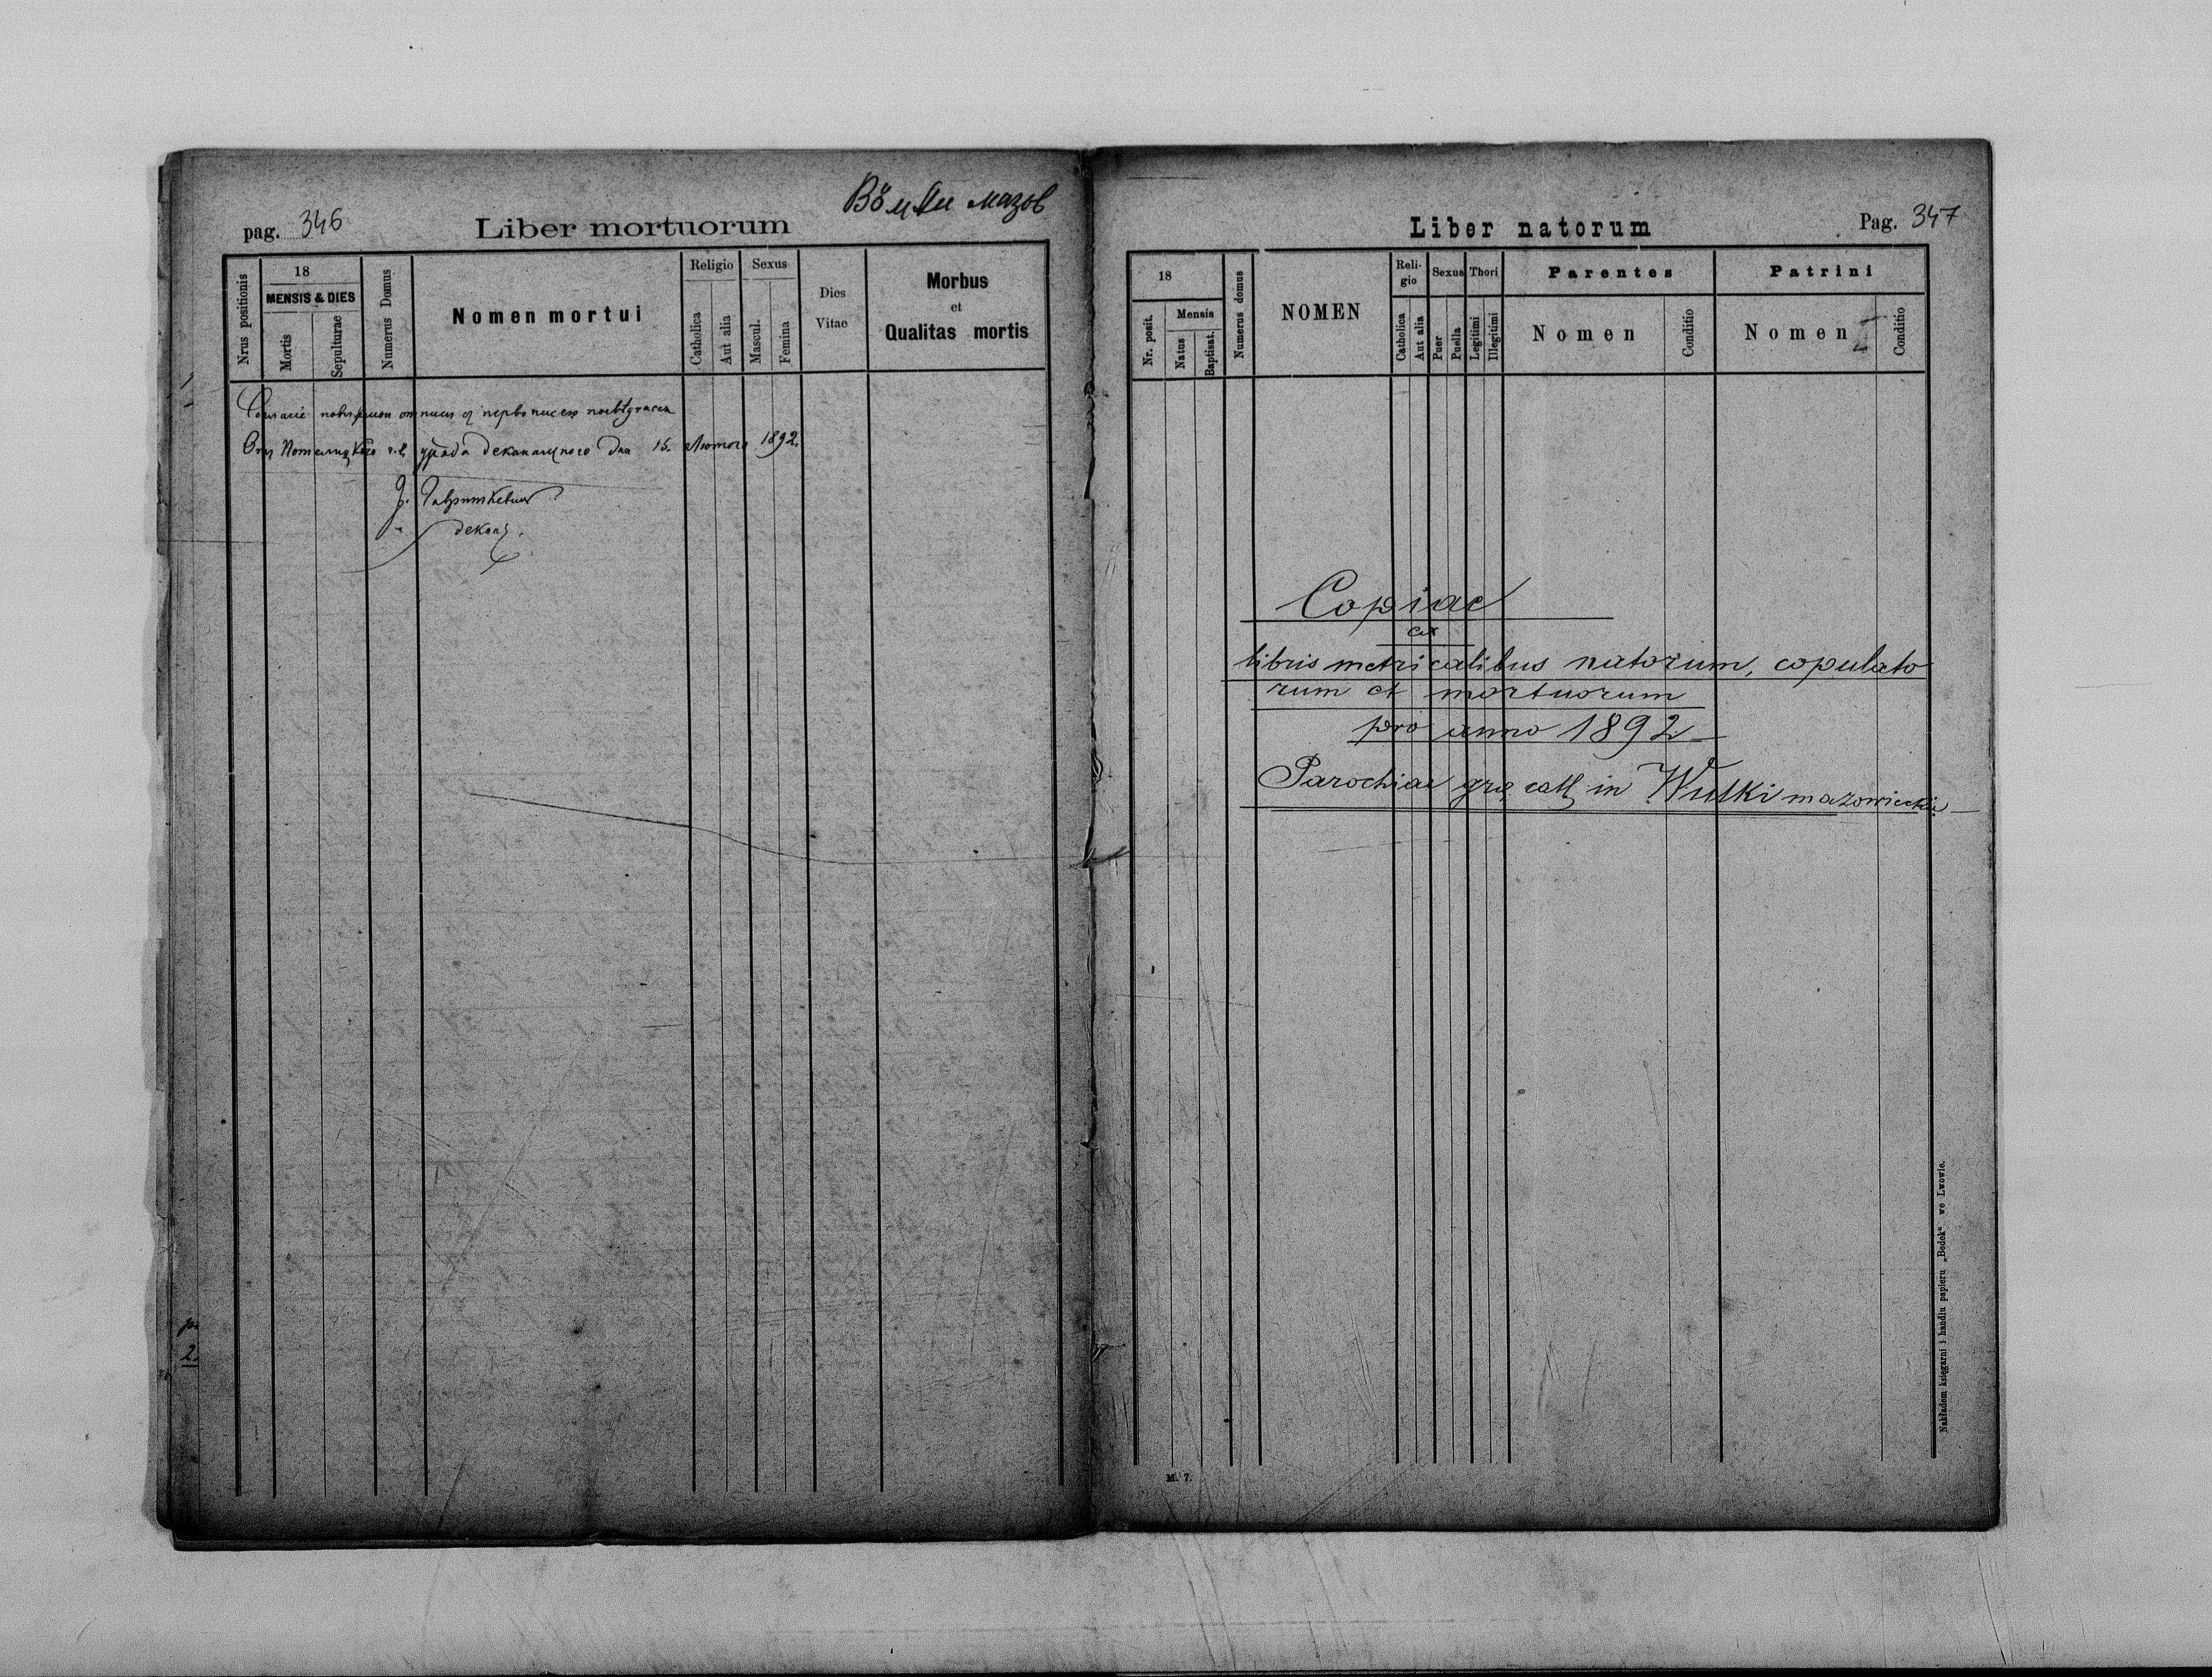 pag. 346
Liber mortuorum
Вôльки мазов
Nrus positionis
18
MENSIS & DIES
Mortis
Sepulturae
Numerus Domus
Nomen mortui
Religio
Catholica
Aut alia
Sexus
Mascul.
Femina
Dies
Vitae
Morbus
et
Qualitas mortis
Согласіе повысшои описи съ первописею посвѣдчаєся
Отъ Потелицкого г. к. уряда деканального дня 15. Лютого 1892.
деканъ.
Liber natorum
Pag. 347
18
Nr. posit.
Mensis
Natus
Baptisat.
Numerus domus
NOMEN
Reli-
gio
Catholica
Aut alia
Sexus
Puer
Puella
Thori
Legitimi
Illegitimi
Parentes
Nomen
Conditio
Patrini
Nomen
Conditio
Copiae
ex
libris metricalibus natorum, copulato
rum et mortuorum
pro anno 1892
Parochiae grc. cath. in Wulki mazowieckie
M. 7.
Nakładem księgarni i handlu papieru „Bodek“ we Lwowie.